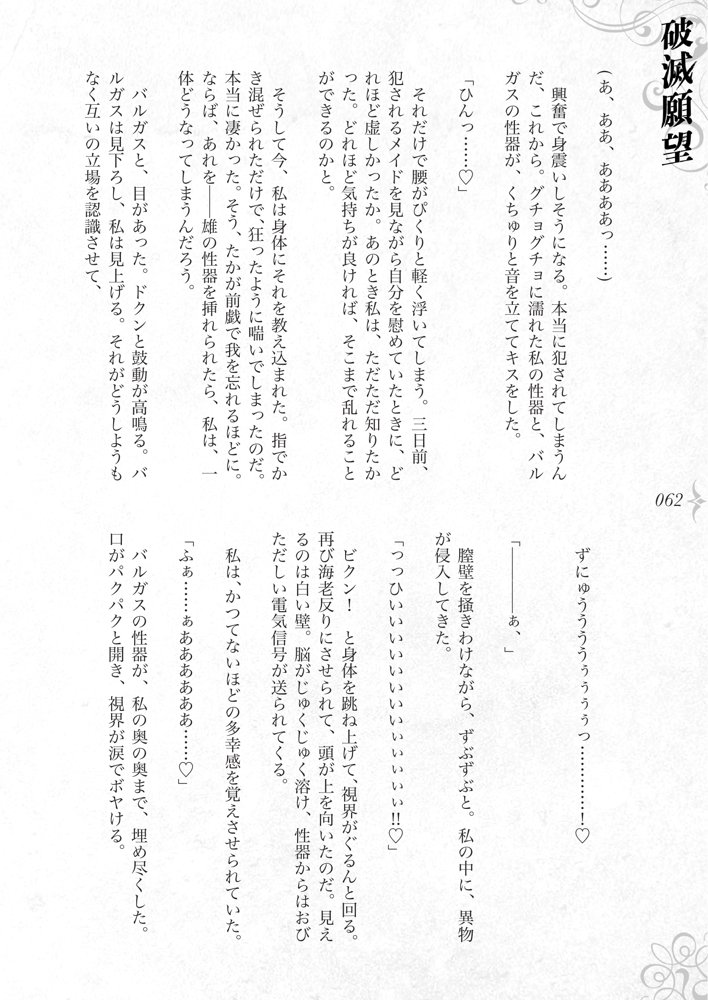 破滅願望
(あ、ああ、ああああっ……)
　興奮で身震いしそうになる。本当に犯されてしまうん
だ、これから。グチョグチョに濡れた私の性器と、バル
ガスの性器が、くちゅりと音を立ててキスをした。
「ひんっ……♡」
　それだけで腰がぴくりと軽く浮いてしまう。三日前、
犯されるメイドを見ながら自分を慰めていたときに、ど
れほど虚しかったか。あのとき私は、ただただ知りたか
った。どれほど気持ちが良ければ、そこまで乱れること
ができるのかと。
　そうして今、私は身体にそれを教え込まれた。指でか
き混ぜられただけで、狂ったように喘いでしまったのだ。
本当に凄かった。そう、たかが前戯で我を忘れるほどに。
ならば、あれを――雄の性器を挿れられたら、私は、一
体どうなってしまうんだろう。
　バルガスと、目があった。ドクンと鼓動が高鳴る。バ
ルガスは見下ろし、私は見上げる。それがどうしようも
なく互いの立場を認識させて、
062
ずにゅうううううぅぅぅっ…………！♡
「――――ぁ、」
　膣壁を掻きわけながら、ずぶずぶと。私の中に、異物
が侵入してきた。
「っっひいいいいいいいいいいぃぃぃぃぃ!!♡」
　ビクン！　と身体を跳ね上げて、視界がぐるんと回る。
再び海老反りにさせられて、頭が上を向いたのだ。見え
るのは白い壁。脳がじゅくじゅく溶け、性器からはおび
ただしい電気信号が送られてくる。
　私は、かつてないほどの多幸感を覚えさせられていた。
「ふぁ……ぁああああああ……♡」
　バルガスの性器が、私の奥の奥まで、埋め尽くした。
口がパクパクと開き、視界が涙でボヤける。